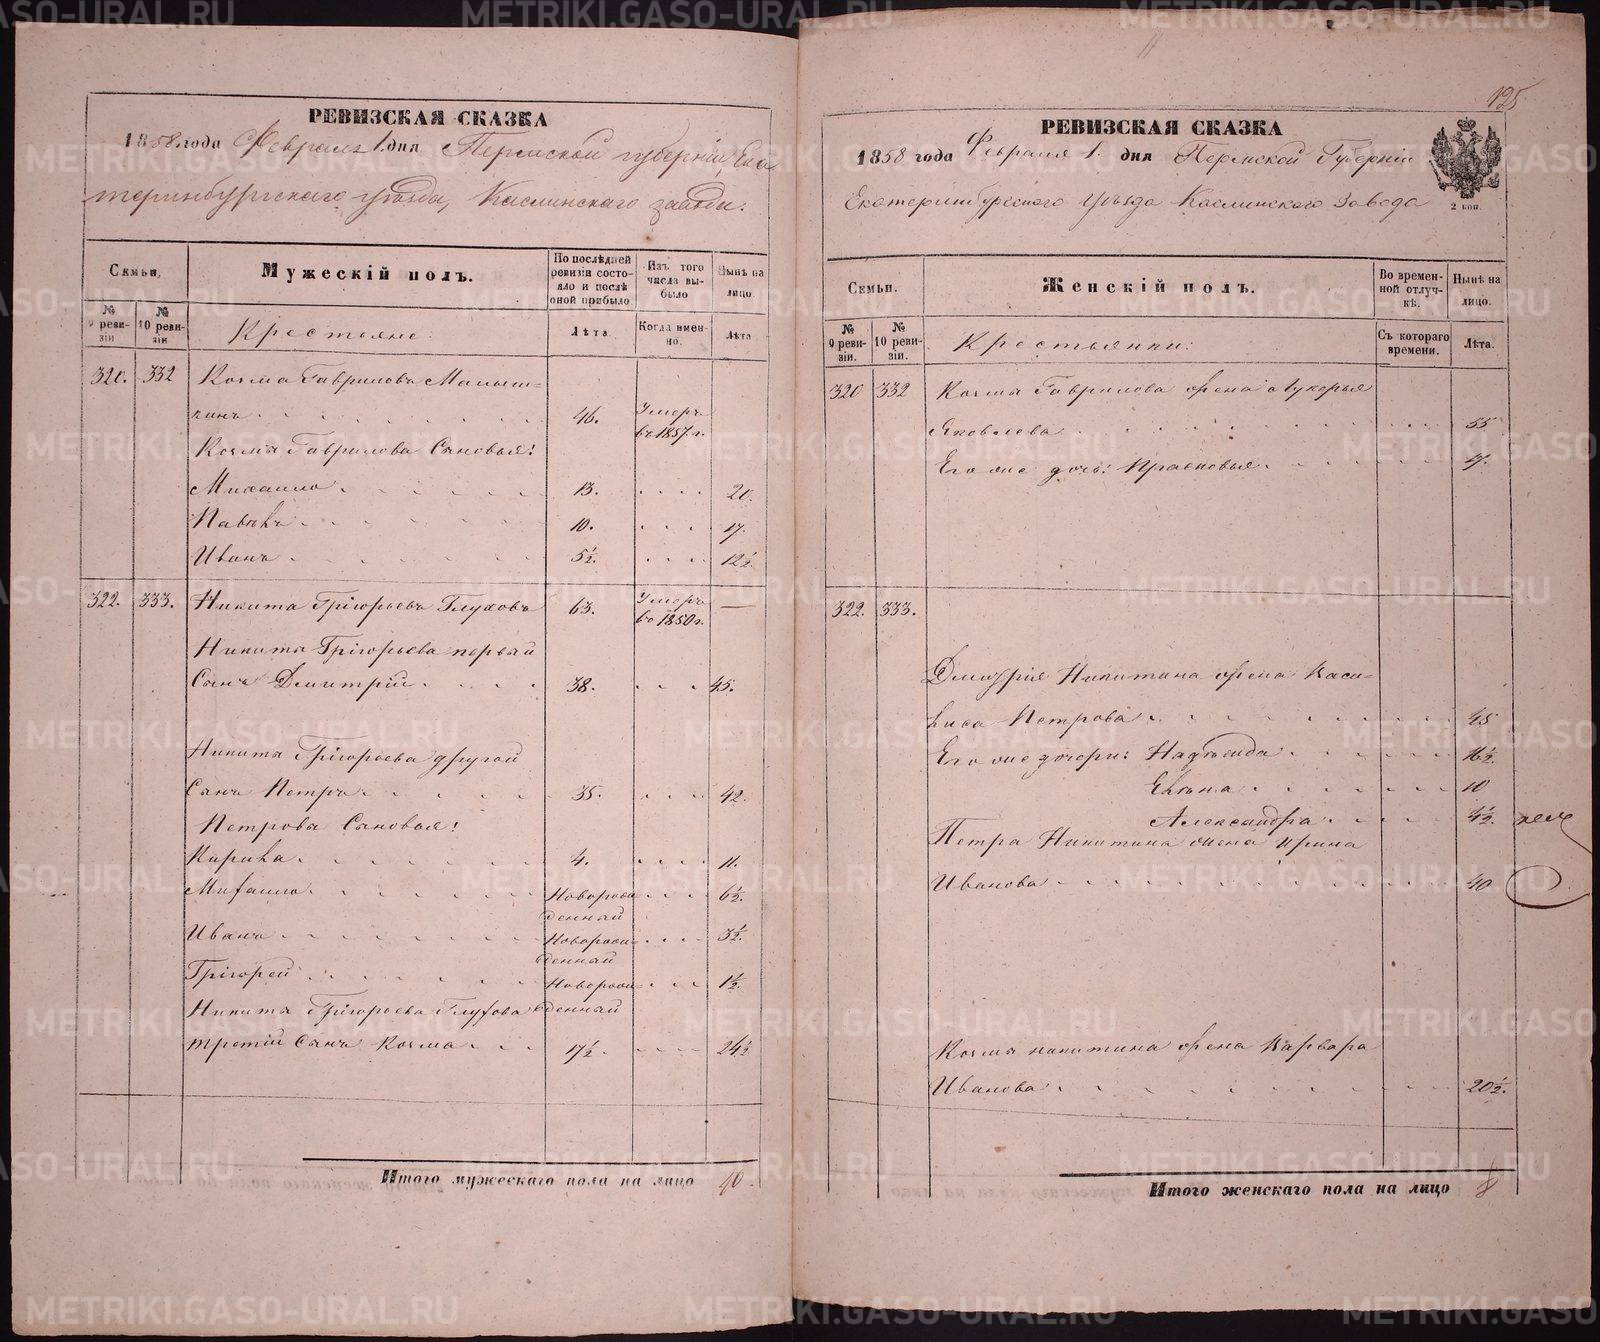 РЕВИЗСКАЯ СКАЗКА
1858 года Февраля 1 дня Пермской губерніи, Ека
теринбургскаго уѣзда, Каслинскаго завода.
Семьи.
Мужескій полъ.
По послѣдней ревизіи состояло и послѣ оной прибыло
Изъ того числа выбыло
Нынѣ на лицо.
№ 9 ревизіи
№ 10 ревизіи
Крестьяне:
Лѣта
Когда именно.
Лѣта
320. 332 Козма Гавриловъ Малыш=
кинъ 46. Умеръ
въ 1857 г.
Козмы Гаврилова Сыновья:
Михаило 13. 20.
Павелъ 10. 17.
Иванъ 5½. 12½
322. 333. Никита Григорьевъ Глуховъ 63. Умеръ —
въ 1850 г.
Никиты Григорьева первый
Сынъ Дмитрій 38. 45.
Никиты Григорьева другой
Сынъ Петръ 35. 42.
Петрова Сыновья:
Кирила 4. 11.
Михаило Новорож 6½.
денный
Иванъ Новорож= 3½.
денный
Григорей Новорож= 1½.
Никиты Григорьева Глухова денный
третій Сынъ Козма 17½. 24½
Итого мужескаго пола на лицо 10.
125
РЕВИЗСКАЯ СКАЗКА
1858 года Февраля 1. дня Пермской Губерніи
Екатеринбургскаго Уѣзда Каслинскаго Завода
2 коп.
Семьи.
Женскій полъ.
Во временной отлучкѣ.
Нынѣ на лицо.
№ 9 ревизіи.
№ 10 ревизіи.
Крестьянки:
Съ котораго времени.
Лѣта.
320 332 Козмы Гаврилова жена Лукерья
Яковлева 55
Его же дочь: Прасковья 17.
322. 333.
Дмитрія Никитина жена Васи=
лиса Петрова 45
Его же дочери: Надежда 16½.
Елена 10
Александра 4½.
Петра Никитина жена Ирина
Иванова 40
Козмы Никитина жена Варвара
Иванова 20½.
Итого женскаго пола на лицо 8
METRIKI.GASO-URAL.RU